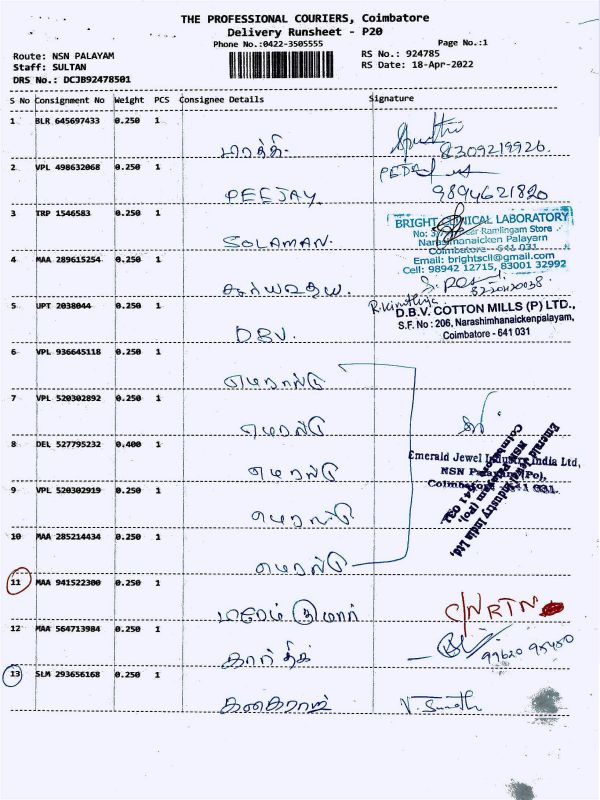 THE PROFESSIONAL COURIERS, Coimbatore
Delivery Runsheet - P20
Phone No.:0422-3505555
Page No.:1
Route: NSN PALAYAM
RS No.: 924785
Staff: SULTAN
RS Date: 18-Apr-2022
DRS No.: DCJB92478501
S No Consignment No Weight PCS Consignee Details Signature
1 BLR 645697433 0.250 1
8309219926.
2 VPL 498632068 0.250 1
PEEJAY 9894621820
3 TRP 1546583 0.250 1
SOLAMAN.
BRIGHT CLINICAL LABORATORY
Ramlingam Store
Narasimanaicken Palayam
Coimbatore - 641 031
Email: brightscil@gmail.com
Cell: 98942 12715, 83001 32992
4 MAA 289615254 0.250 1
5 UPT 2038044 0.250 1
DBV.
D.B.V. COTTON MILLS (P) LTD.,
S.F. No : 206, Narashimhanaickenpalayam,
Coimbatore - 641 031
6 VPL 936645118 0.250 1
எமரால்டு
7 VPL 520302892 0.250 1
எமரால்டு
8 DEL 527795232 0.400 1
எமரால்டு
Emerald Jewel Industry India Ltd,
NSN Palayam (Po),
Coimbatore - 641 031.
Emerald Jewel Industry India Ltd,
NSN Palayam (Po),
Coimbatore - 641 031.
9 VPL 520302919 0.250 1
எமரால்டு
10 MAA 285214434 0.250 1
எமரால்டு
11 MAA 941522300 0.250 1
குமார்
C/N RTN
12 MAA 564713984 0.250 1
கார்திக்
99620 95450
13 SLM 293656168 0.250 1
கனகராஜ்